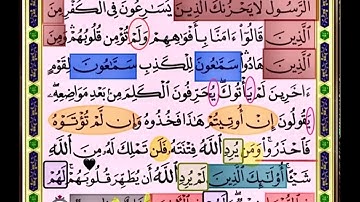 ٱلرَّسُولُ لَا يَحْزُنكَ ٱلَّذِينَ يُسَٰرِعُونَ فِى ٱلْكُفْرِ مِنَ
ٱلَّذِينَ قَالُوٓا۟ ءَامَنَّا بِأَفْوَٰهِهِمْ وَلَمْ تُؤْمِن قُلُوبُهُمْ وَمِنَ
ٱلَّذِينَ هَادُوا۟ سَمَّٰعُونَ لِلْكَذِبِ سَمَّٰعُونَ لِقَوْمٍ
ءَاخَرِينَ لَمْ يَأْتُوكَ يُحَرِّفُونَ ٱلْكَلِمَ مِنۢ بَعْدِ مَوَاضِعِهِۦ
يَقُولُونَ إِنْ أُوتِيتُمْ هَٰذَا فَخُذُوهُ وَإِن لَّمْ تُؤْتَوْهُ
فَٱحْذَرُوا۟ وَمَن يُرِدِ ٱللَّهُ فِتْنَتَهُۥ فَلَن تَمْلِكَ لَهُۥ مِنَ ٱللَّهِ
شَيْـًٔا أُو۟لَٰٓئِكَ ٱلَّذِينَ لَمْ يُرِدِ ٱللَّهُ أَن يُطَهِّرَ قُلُوبَهُمْ لَهُمْ